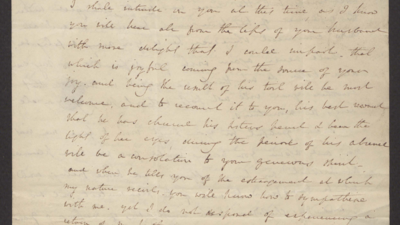 I shall intrude on you at this time as I know
you will hear all from the lips of your husband
with more delight than I could impart. that
which is joyful coming from the source of your
joy, and being the result of his toil will be most
welcome, and to recount it to you, his best reward
that he has cheered his sisters heart & been the
light of her eyes, during the period of his absence
will be a consolation to your generous
and when he tells you of the estrangement at which
my nature recoils, you will know how to sympathise
with me. yet I do not despond of experiencing a
return of